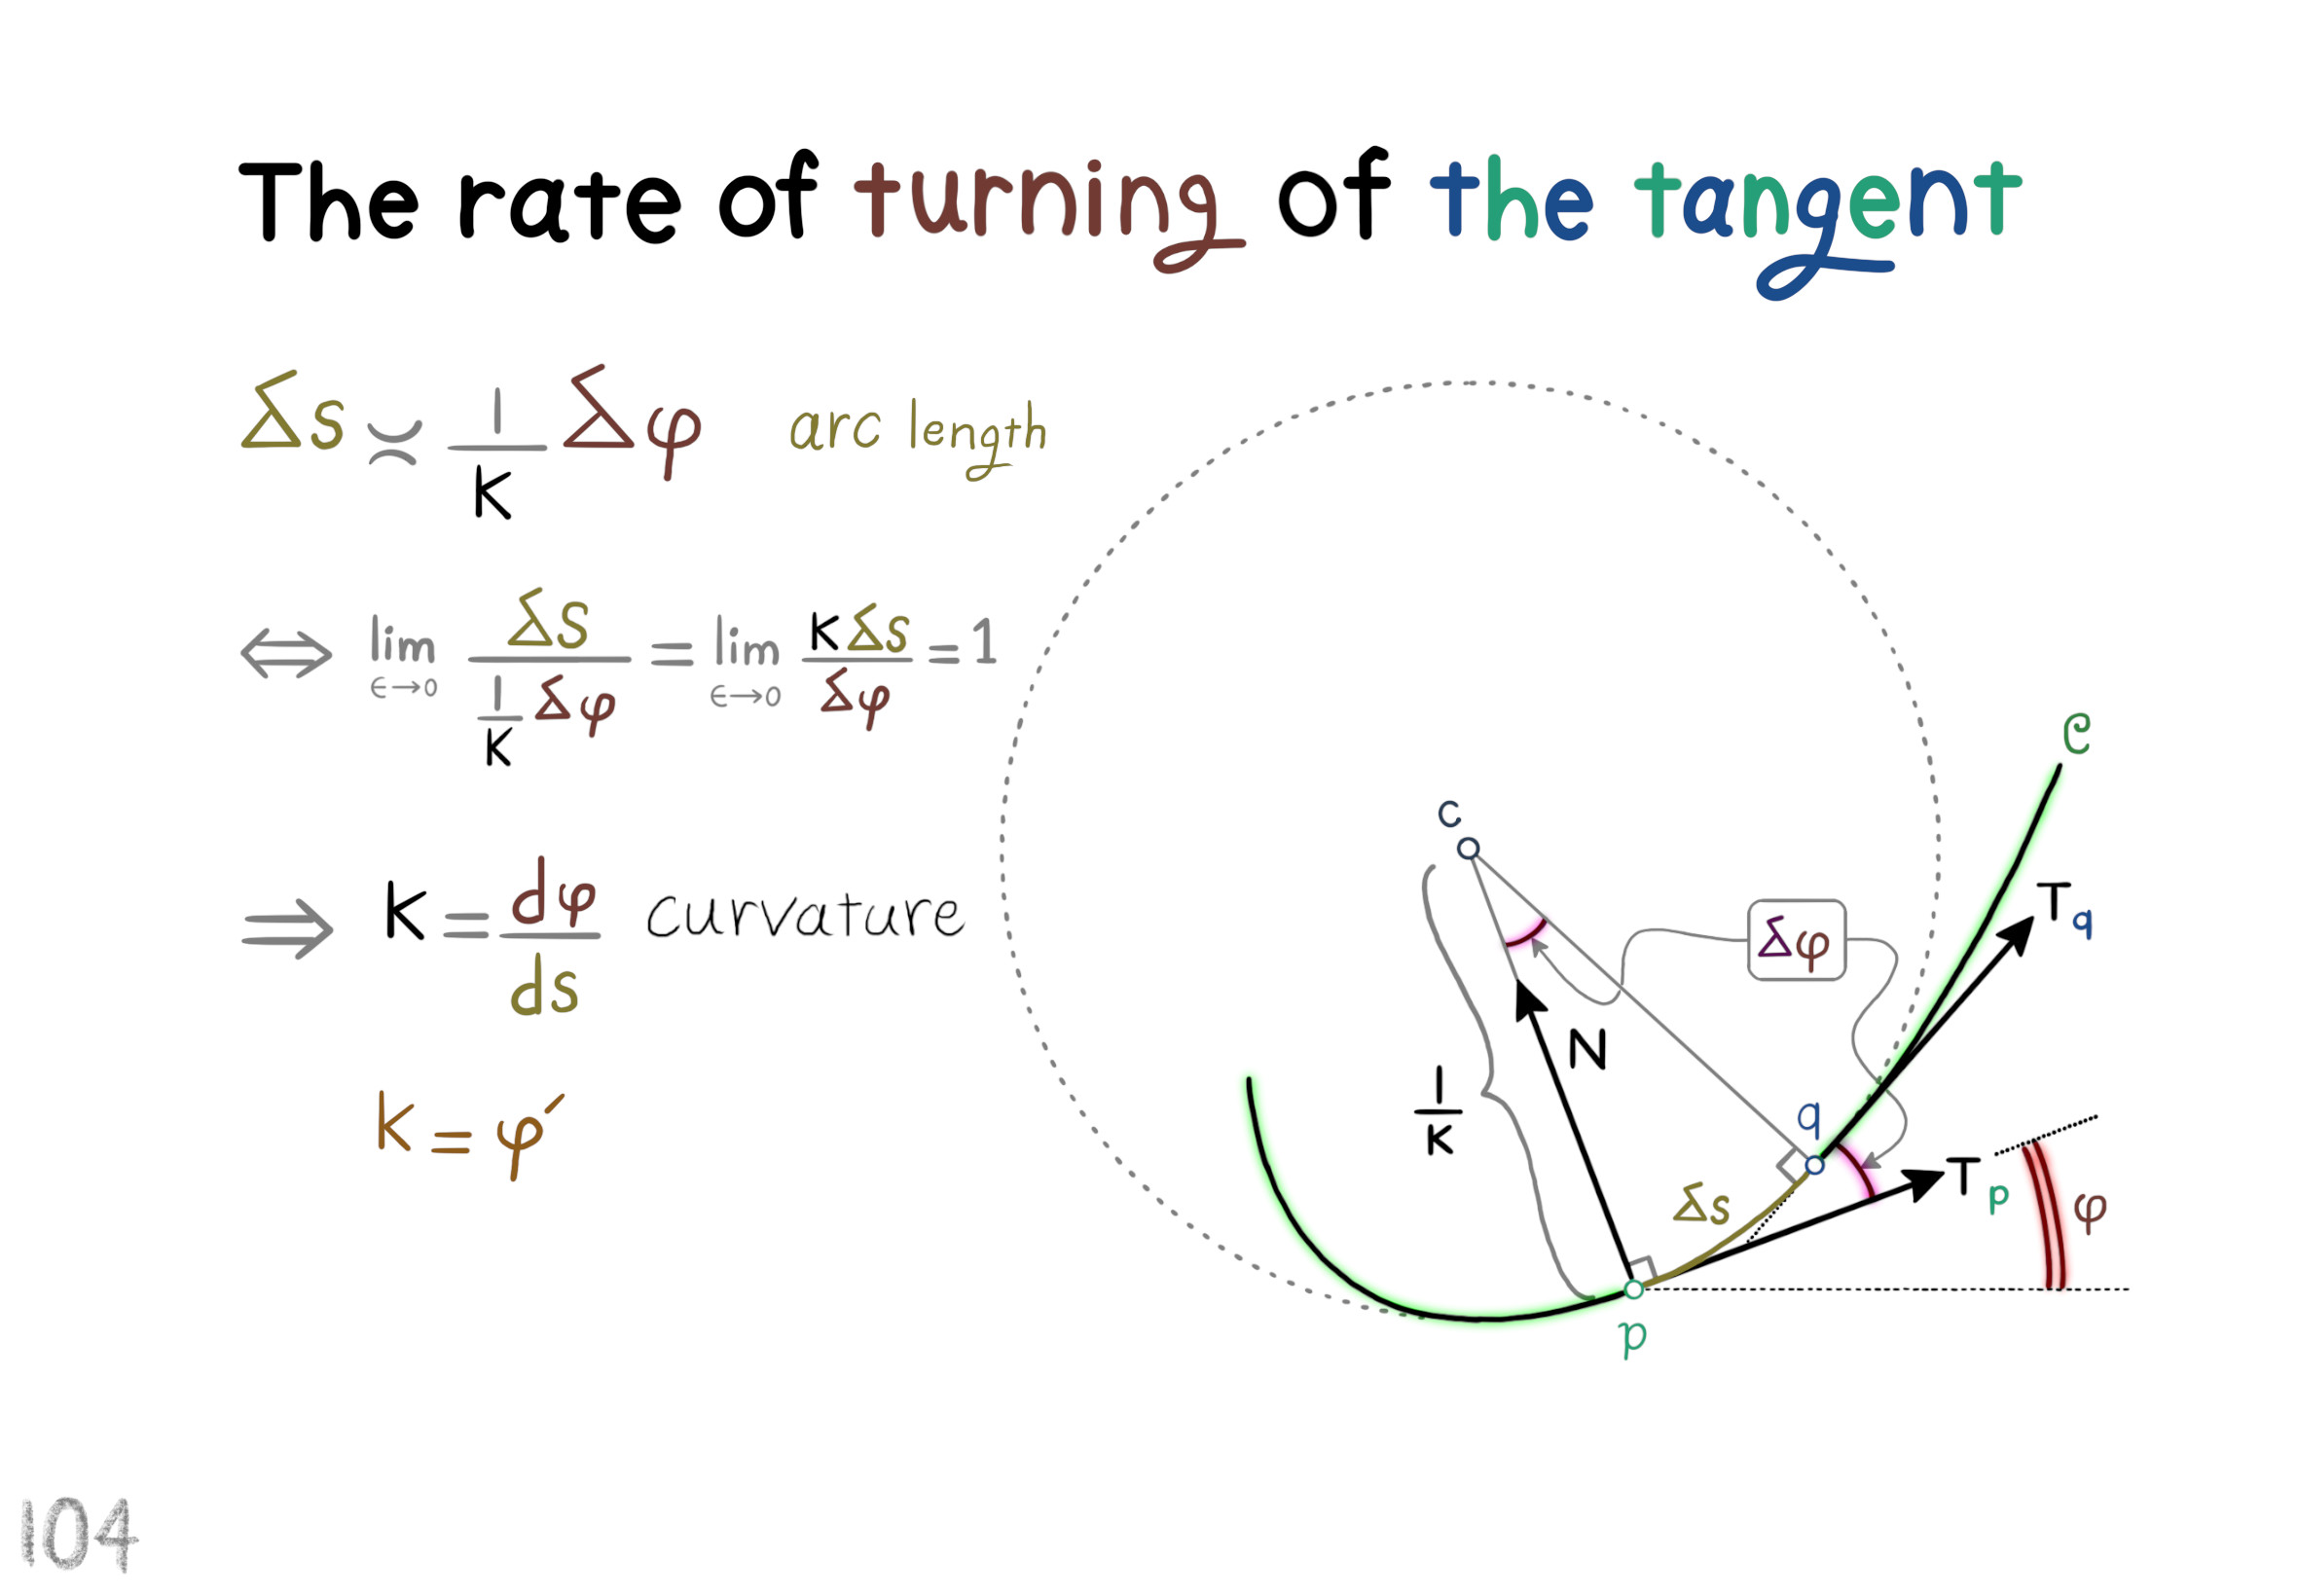 The rate of turning of the tangent
Δs ≍ 1/κ Δφ arc length
⇔ lim ϵ→0 Δs / (1/κ Δφ) = lim ϵ→0 κΔs / Δφ = 1
⇒ κ = dφ/ds curvature
κ = φ′
C
c
T q
Δφ
N
1/κ
q
T p
Δs
φ
p
104